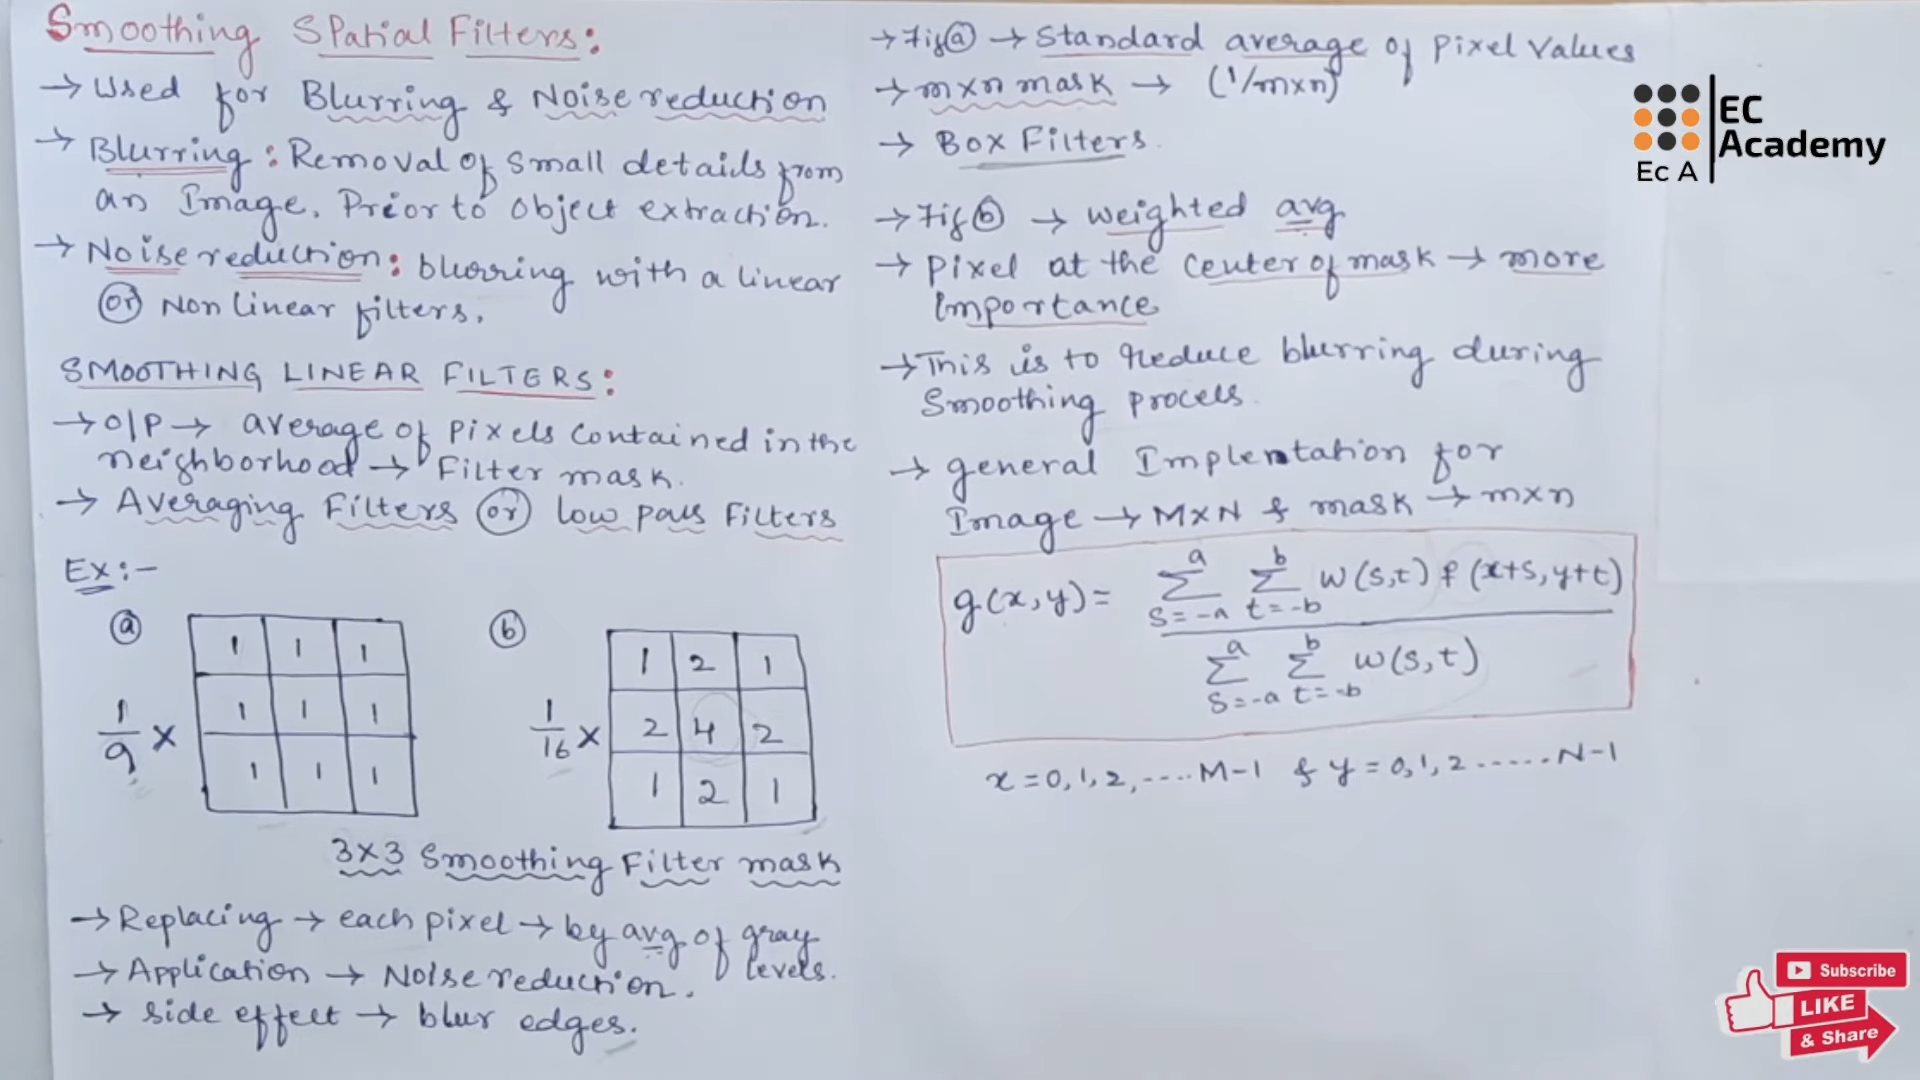 Smoothing Spatial Filters:
→ Used for Blurring & Noise reduction
→ Blurring: Removal of small details from
an Image, Prior to object extraction.
→ Noise reduction: blurring with a linear
or Non linear filters.
SMOOTHING LINEAR FILTERS:
→ O/P → average of pixels contained in the
neighborhood → Filter mask.
→ Averaging Filters or low pass Filters
Ex:-
a
1/9 ×
1 1 1
1 1 1
1 1 1
b
1/16 ×
1 2 1
2 4 2
1 2 1
3×3 Smoothing Filter mask
→ Replacing → each pixel → by avg of gray
levels.
→ Application → Noise reduction.
→ side effect → blur edges.
→ Fig a → Standard average of pixel values
→ m×n mask → (1/m×n)
→ Box Filters.
→ Fig b → weighted avg
→ pixel at the center of mask → more
Importance
→ This is to reduce blurring during
Smoothing process.
→ general Implentation for
Image → M×N & mask → m×n
g(x,y) = Σ^a_{s=-a} Σ^b_{t=-b} w(s,t) f(x+s, y+t)
Σ^a_{s=-a} Σ^b_{t=-b} w(s,t)
x = 0,1,2,....M-1 & y = 0,1,2.....N-1
EC
Academy
Ec A
Subscribe
LIKE
& Share